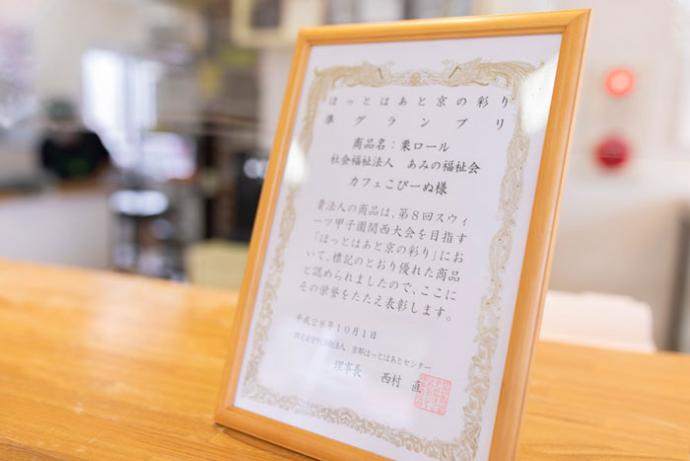 ほっとはあと京の彩り
準グランプリ
商品名：栗ロール
社会福祉法人 あみの福祉会
カフェこぴーぬ様
貴法人の商品は、第８回スウィ
ーツ甲子園関西大会を目指す
「ほっとはあと京の彩り」にお
いて、標記のとおり優れた商品
と認められましたので、ここに
その栄誉をたたえ表彰します。
平成２８年１０月１日
法人 京都ほっとはあとセンター
理事長 西村 直